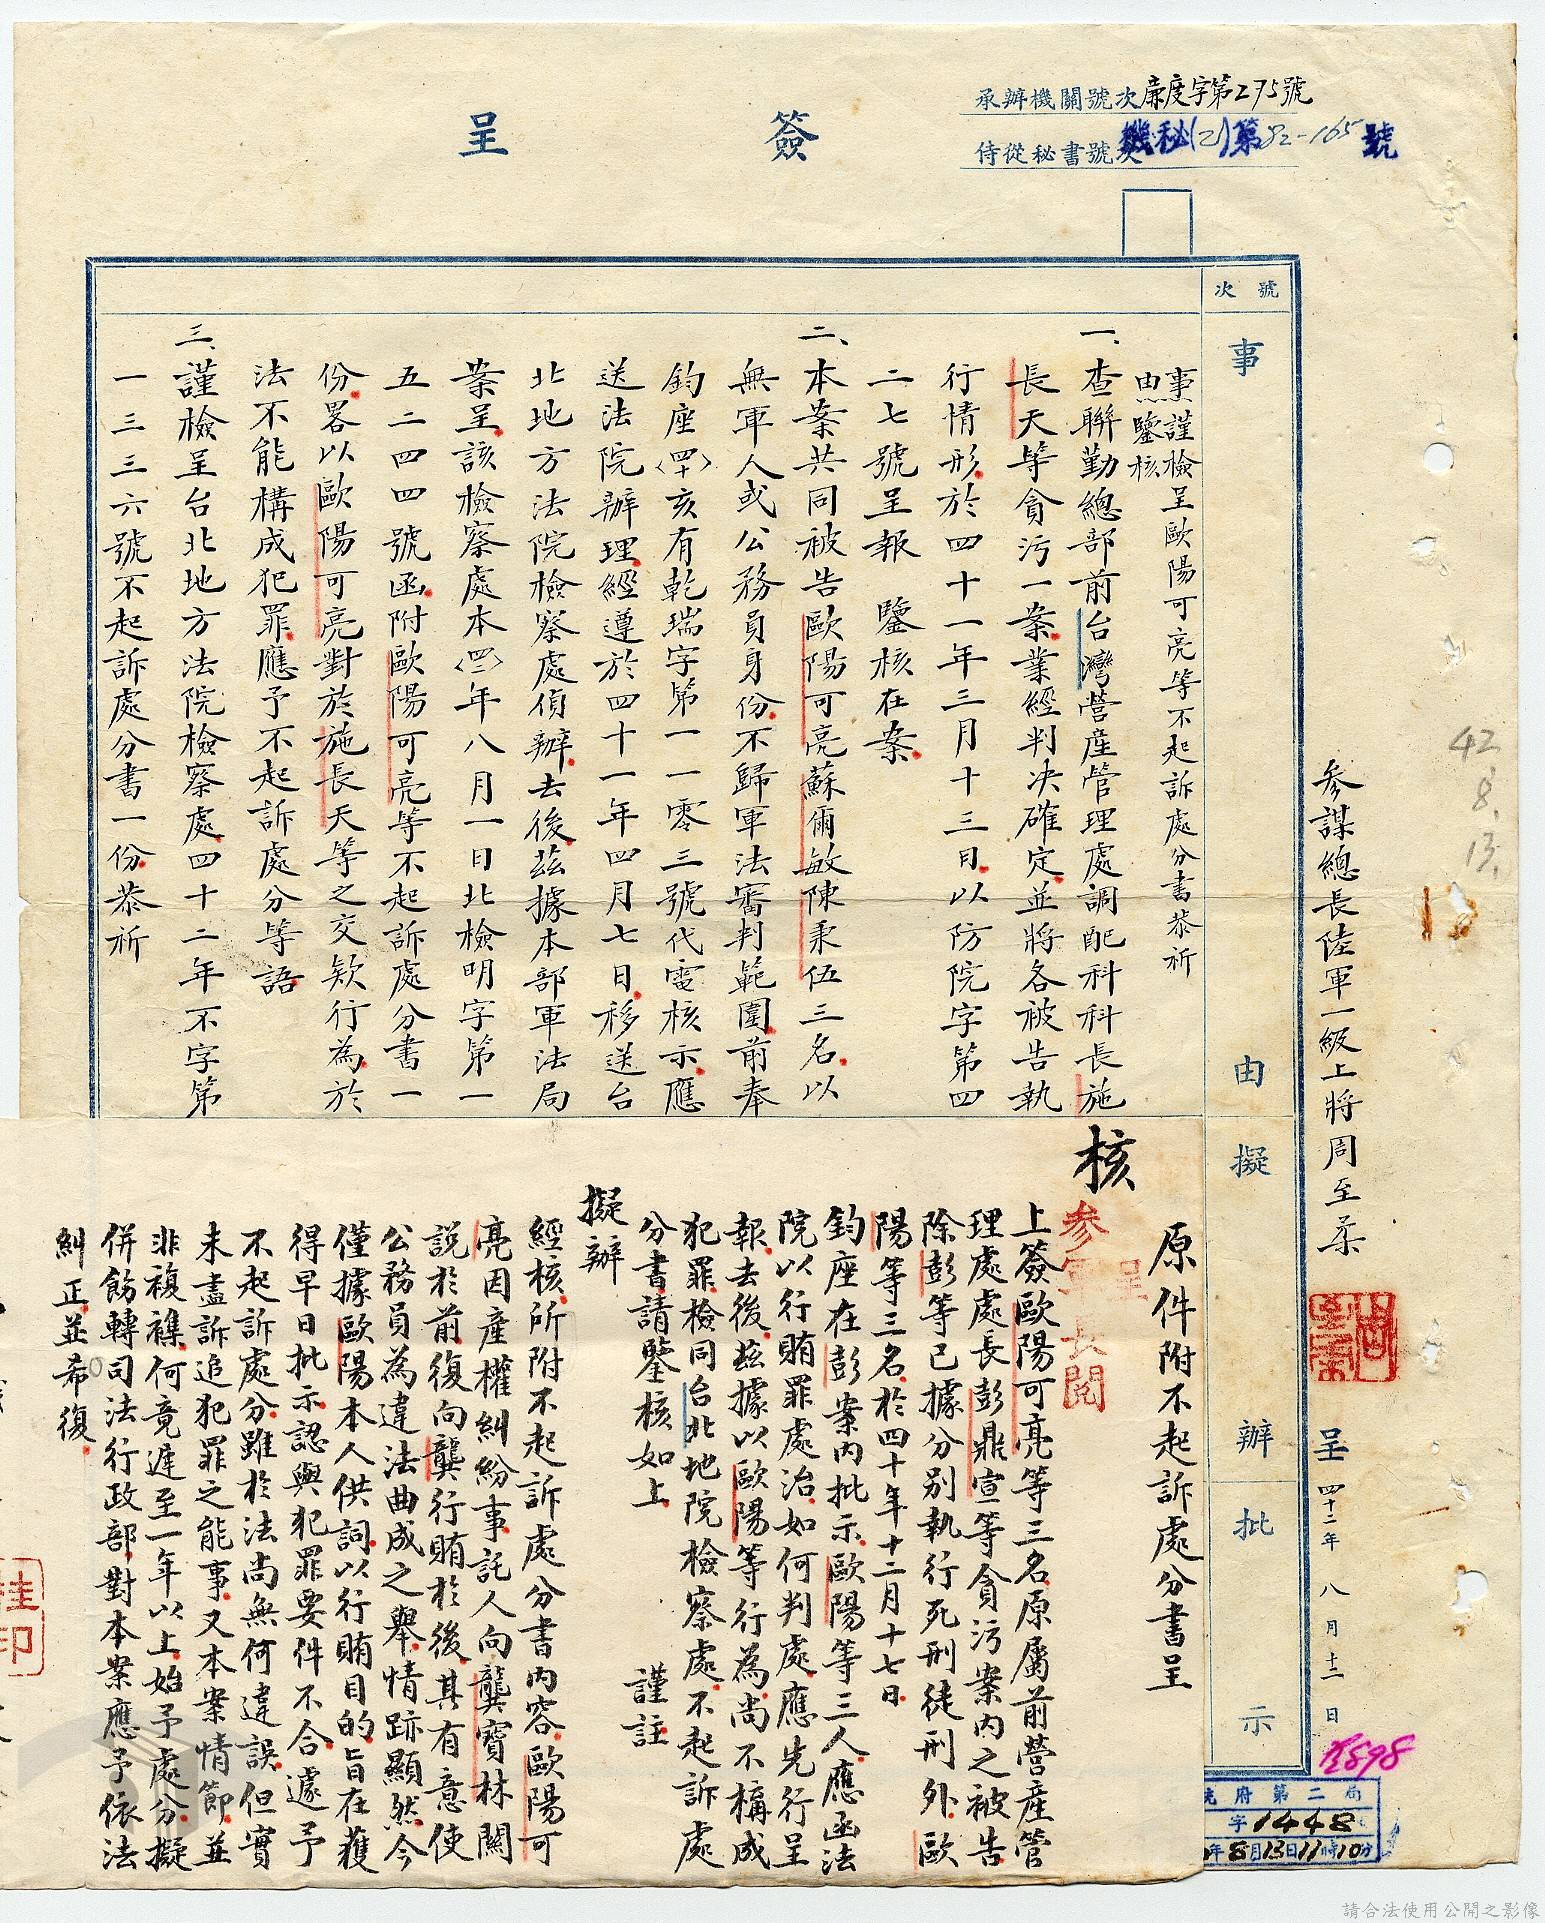 簽呈
承辦機關號次廉度字第275號
侍從秘書號次機秘(乙)第82-165號
號次
事由
擬辦
批示
事由：謹檢呈歐陽可亮等不起訴處分書恭祈
鑒核
一、查聯勤總部前台灣營產管理處調配科科長施
長天等貪污一案業經判決確定並將各被告執
行情形於四十一年三月十三日以防院字第四
二七號呈報 鑒核在案
二、本案共同被告歐陽可亮蘇爾敏陳秉伍三名以
無軍人或公務員身份不歸軍法審判範圍前奉
鈞座〈四十〉亥有乾瑞字第一一零三號代電核示應
送法院辦理經遵於四十一年四月七日移送台
北地方法院檢察處偵辦去後茲據本部軍法局
案呈該檢察處本〈四二〉年八月一日北檢明字第一
五二四四號函附歐陽可亮等不起訴處分書一
份畧以歐陽可亮對於施長天等之交欵行為於
法不能構成犯罪應予不起訴處分等語
三、謹檢呈台北地方法院檢察處四十二年不字第
一三三六號不起訴處分書一份恭祈
核
原件附不起訴處分書呈
參謀總長陸軍一級上將周至柔
呈 四十二年 八月十二日
42.8.13.
參軍長閱
呈
上簽歐陽可亮等三名原屬前營產管
理處處長彭鼎宣等貪污案內之被告
除彭等已據分別執行死刑徒刑外歐
陽等三名於四十年十二月十七日
鈞座在彭案內批示歐陽等三人應函法
院以行賄罪處治如何判處應先行呈
報去後茲據以歐陽等行為尚不構成
犯罪檢同台北地院檢察處不起訴處
分書請鑒核如上 謹註
擬辦
經核所附不起訴處分書內容歐陽可
亮因產權糾紛事託人向龔寶林關
說於前復向龔行賄於後其有意使
公務員為違法曲成之舉情跡顯然今
僅據歐陽本人供詞以行賄目的旨在獲
得早日批示認與犯罪要件不合遽予
不起訴處分雖於法尚無何違誤但實
未盡訴追犯罪之能事又本案情節並
非複襍何竟遲至一年以上始予處分擬
併飭轉司法行政部對本案應予依法
糾正並希復
統府第二局
字1448
年8月13日11時10分
請合法使用公開之影像